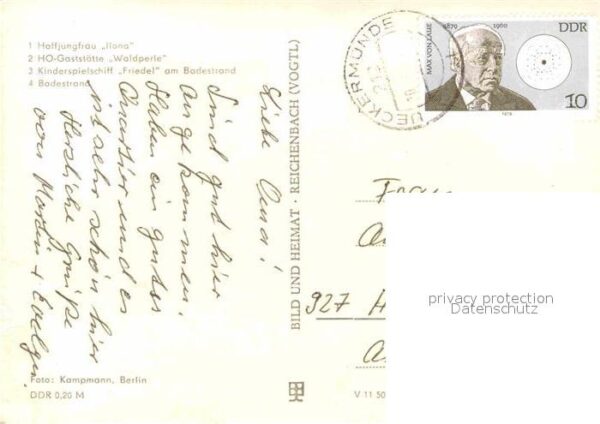 1 Haffjungfrau „Ilona"
2 HO-Gaststätte „Waldperle"
3 Kinderspielschiff „Friedel" am Badestrand
4 Badestrand
Liebe Oma!
Sind gut hier
angekommen.
Haben ein gutes
Quartier und es
ist sehr schön hier
Herzliche Grüße
von Martin +
Foto: Kampmann, Berlin
DDR 0,20 M
BILD UND HEIMAT · REICHENBACH (VOGTL)
V 11 50
UECKERMÜNDE
1879 1960
DDR
MAX VON LAUE
10
1979
Frau
927 H
privacy protection
Datenschutz